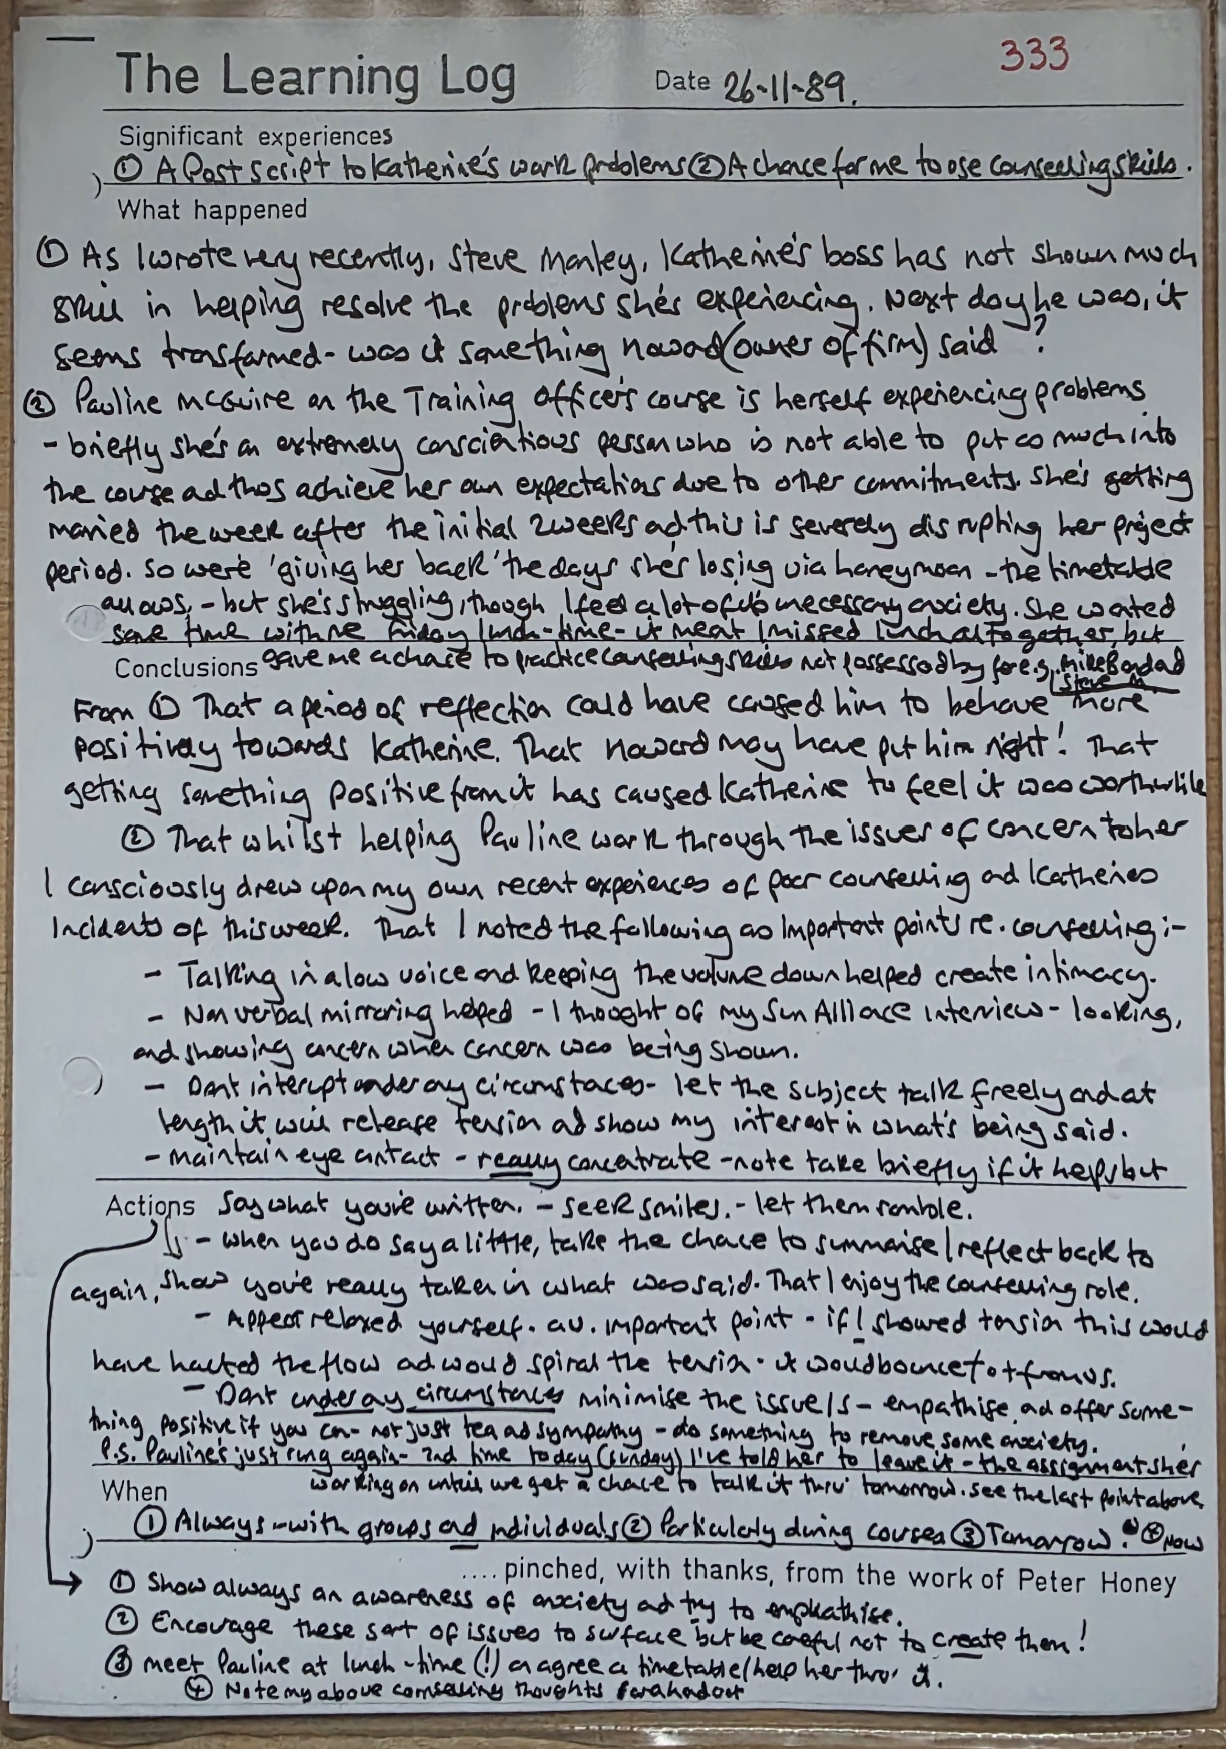 333
The Learning Log Date 26-11-89.
Significant experiences
① A Post script to Katherine's work problems ② A chance for me to use counselling skills.
What happened
① As I wrote very recently, Steve Manley, Katherine's boss has not shown much
skill in helping resolve the problems she's experiencing. Next day he was, it
seems transformed - was it something Howard (owner of firm) said ?
② Pauline McGuire on the Training Officer's course is herself experiencing problems
- briefly she's an extremely conscientious person who is not able to put as much into
the course and thus achieve her own expectations due to other commitments. She's getting
married the week after the initial 2 weeks and this is severely disrupting her project
period. So we're 'giving her back' the days she's losing via honeymoon - the timetable
allows, - but she's struggling, though I feel a lot of it's unnecessary anxiety. She wanted
some time with me Friday lunch-time - it meant I missed lunch altogether, but
gave me a chance to practice counselling skills not possessed by for e.g. Mike Bond and
Steve M.
Conclusions
From ① That a period of reflection could have caused him to behave more
positively towards Katherine. That Howard may have put him right! That
getting something positive from it has caused Katherine to feel it was worthwhile
② That whilst helping Pauline work through the issues of concern to her
I consciously drew upon my own recent experiences of poor counselling and Katherine's
incidents of this week. That I noted the following as important points re. counselling :-
- Talking in a low voice and keeping the volume down helped create intimacy.
- Non verbal mirroring helped - I thought of my Sun Alliance interview - looking,
and showing concern when concern was being shown.
- Don't interupt under any circumstances - let the subject talk freely and at
length it will release tension and show my interest in what's being said.
- maintain eye contact - really concentrate - note take briefly if it helps but
Actions say what you've written. - seek smiles. - let them ramble.
- when you do say a little, take the chance to summarise / reflect back to
again, show you've really taken in what was said. That I enjoy the counselling role.
- Appear relaxed yourself. an important point - if I showed tension this would
have halted the flow and would spiral the tension. it would bounce to + from us.
- Don't under any circumstances minimise the issue/s - empathise and offer some-
thing positive if you can - not just tea and sympathy - do something to remove some anxiety.
P.S. Pauline's just rung again - 2nd time today (Sunday) I've told her to leave it - the assignment she's
working on until we get a chance to talk it thru' tomorrow. See the last point above.
When
① Always - with groups and individuals ② Particularly during courses ③ Tomorrow! ④ Now
.... pinched, with thanks, from the work of Peter Honey
① Show always an awareness of anxiety and try to emphathise.
② Encourage these sort of issues to surface but be careful not to create them!
③ meet Pauline at lunch-time (!) on agree a timetable/help her thro' it.
④ Note my above counselling thoughts for a handout